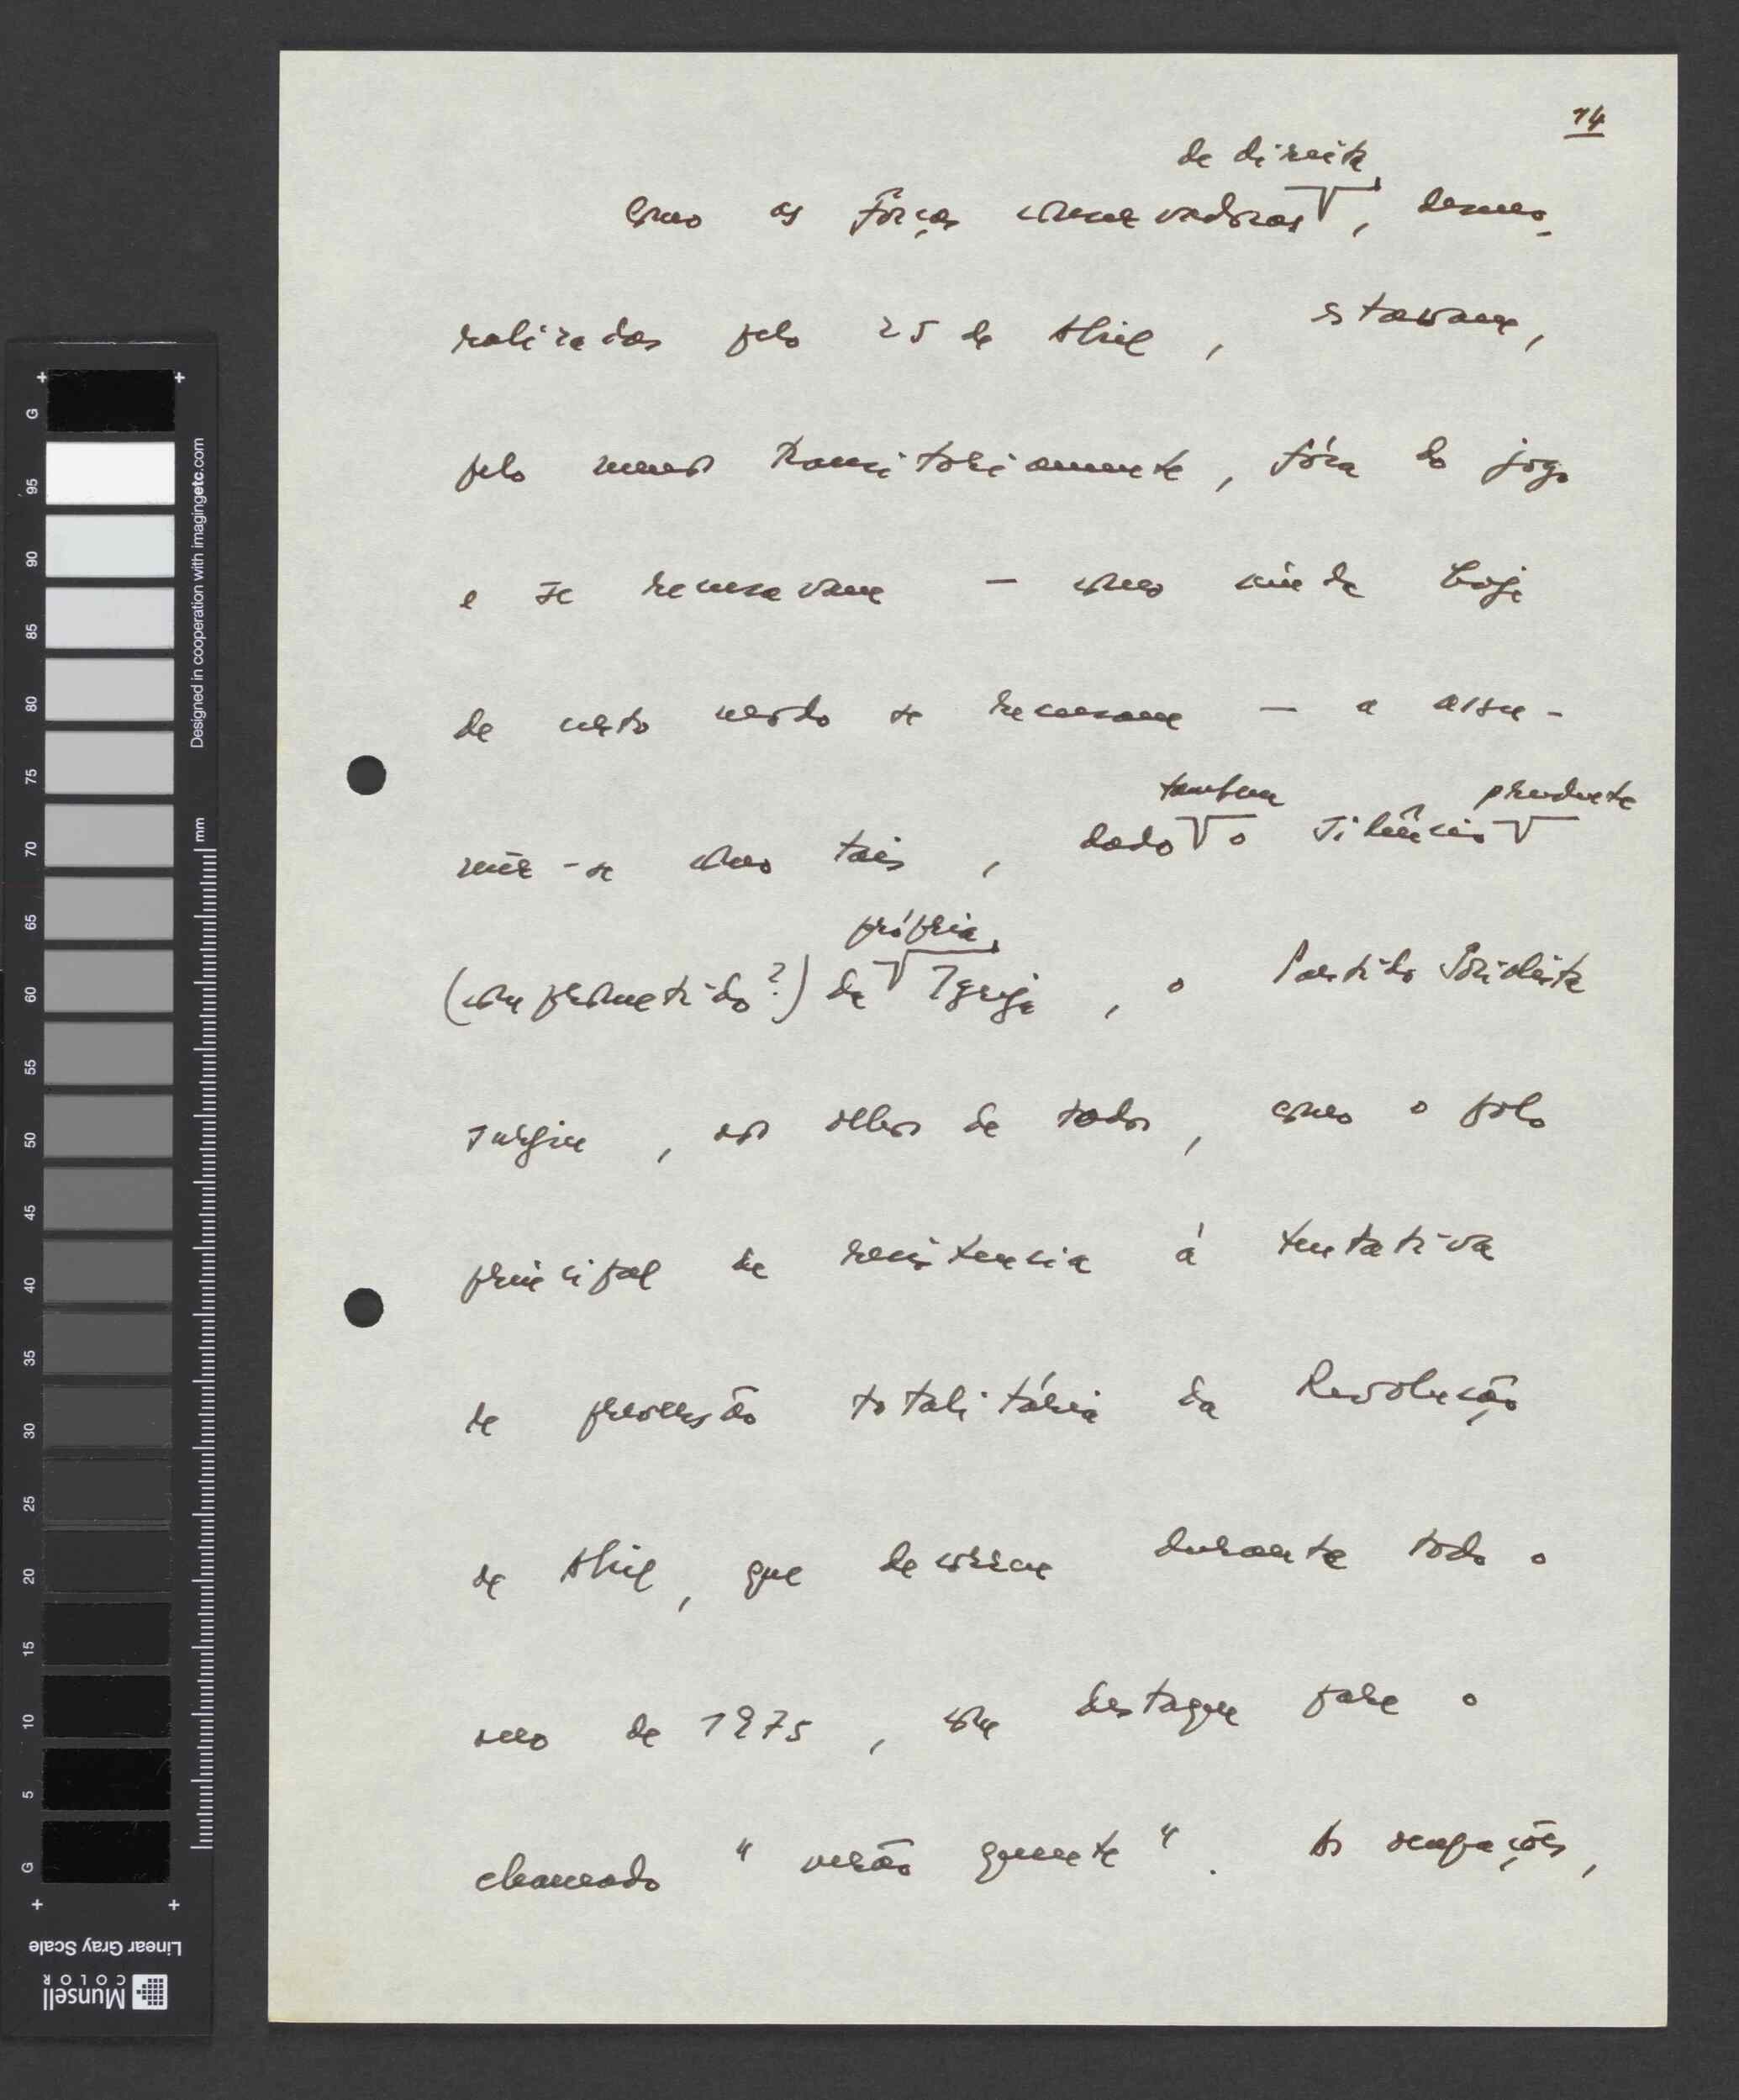 14
de direita
Como as fôrças conservadoras, desmo-
ralizadas pelo 25 de Abril, estavam,
pelo menos transitoriamente, fóra do jogo
e se recusavam — como ainda hoje
de certo modo se recusam — a assu-
também prudente
mir-se como tais, dado o silêncio
própria
(comprometido?) da Igreja, o Partido Socialista
surgiu, aos olhos de todos, como o polo
principal de resistencia á tentativa
de perversão totalitária da Revolução
de Abril, que decorreu durante todo o
ano de 1975, com destaque para o
chamado "verão quente". As ocupações,
+ +
G
95
90
85
80
75
70
65
60
55
50
45
40
35
30
25
20
15
10
5
G
+ +
Designed in cooperation with imagingetc.com
mm
Linear Gray Scale
Munsell
COLOR